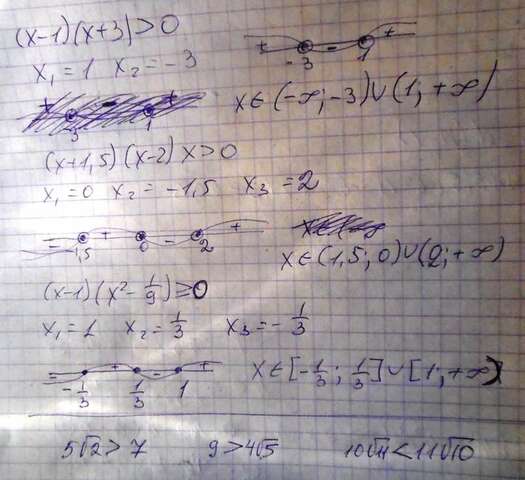 (x-1)(x+3)>0
x₁=1 x₂=-3
+ - +
-3 1
x∈(-∞;-3)∪(1;+∞)
(x+1,5)(x-2)x>0
x₁=0 x₂=-1,5 x₃=2
- + - +
-1,5 0 2
x∈(1,5;0)∪(2;+∞)
(x-1)(x²-1/9)≥0
x₁=1 x₂=1/3 x₃=-1/3
- + - +
-1/3 1/3 1
x∈[-1/3;1/3]∪[1;+∞)
5√2>7 9>4√5 10√11<11√10